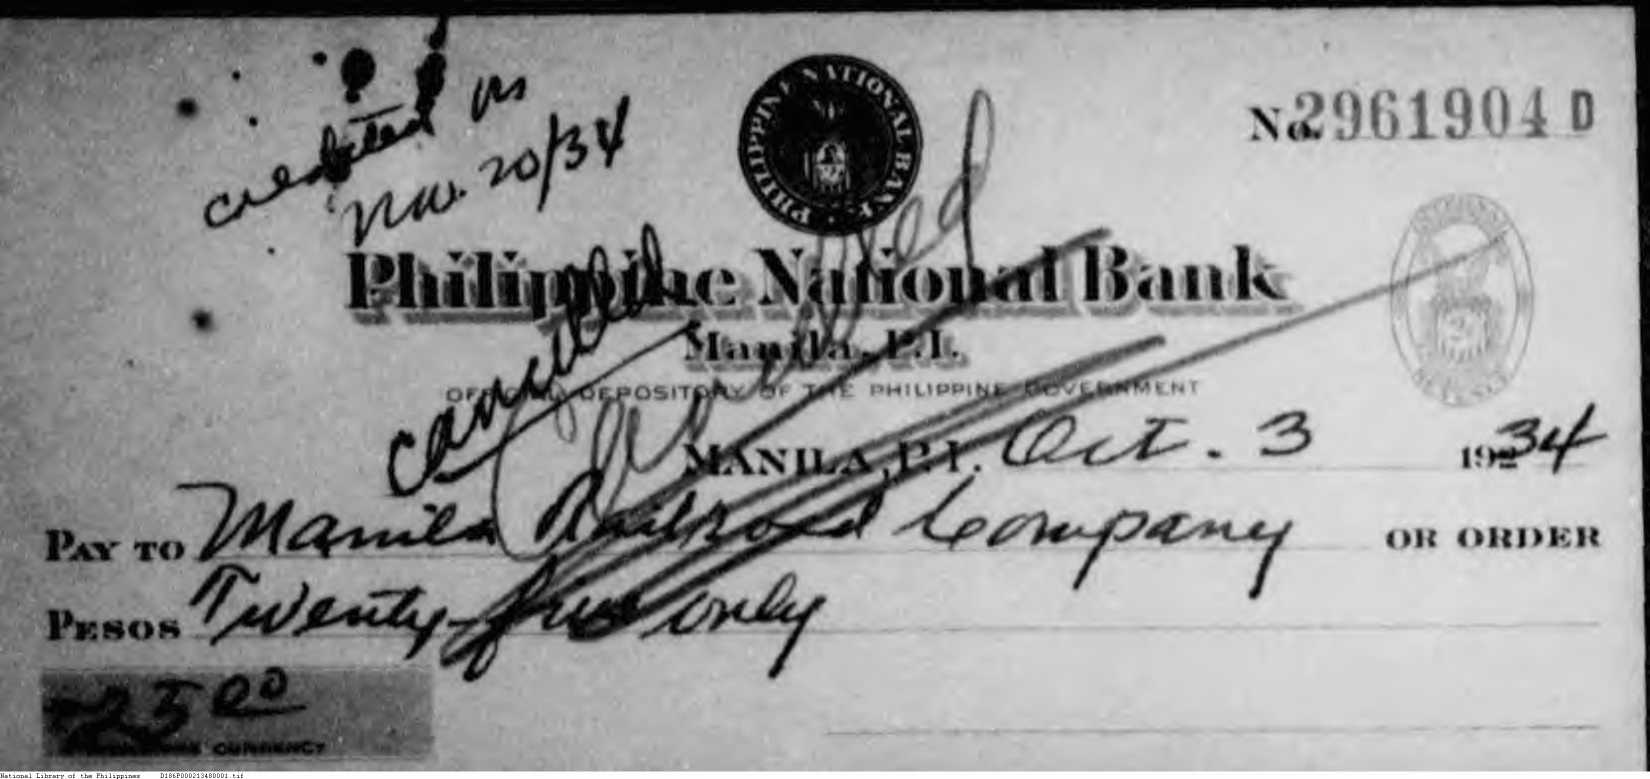 credited on
Nov. 20/34
PHILIPPINE NATIONAL BANK
No. 2961904 D
Philippine National Bank
Manila, P.I.
OFFICIAL DEPOSITORY OF THE PHILIPPINE GOVERNMENT
cancelled
Cancelled
MANILA, P.I. Oct. 3 1934
PAY TO Manila Railroad Company OR ORDER
PESOS Twenty-five only
25 00
CURRENCY
National Library of the Philippines D186P000213480001.tif